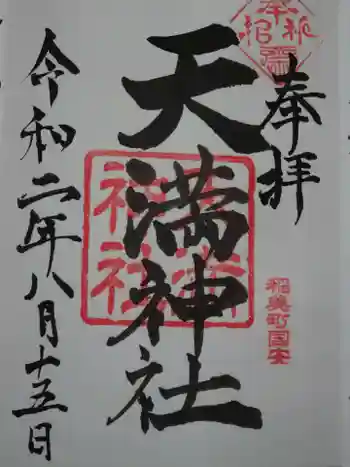 奉拝
稲美町国安
天満神社
令和二年八月十五日